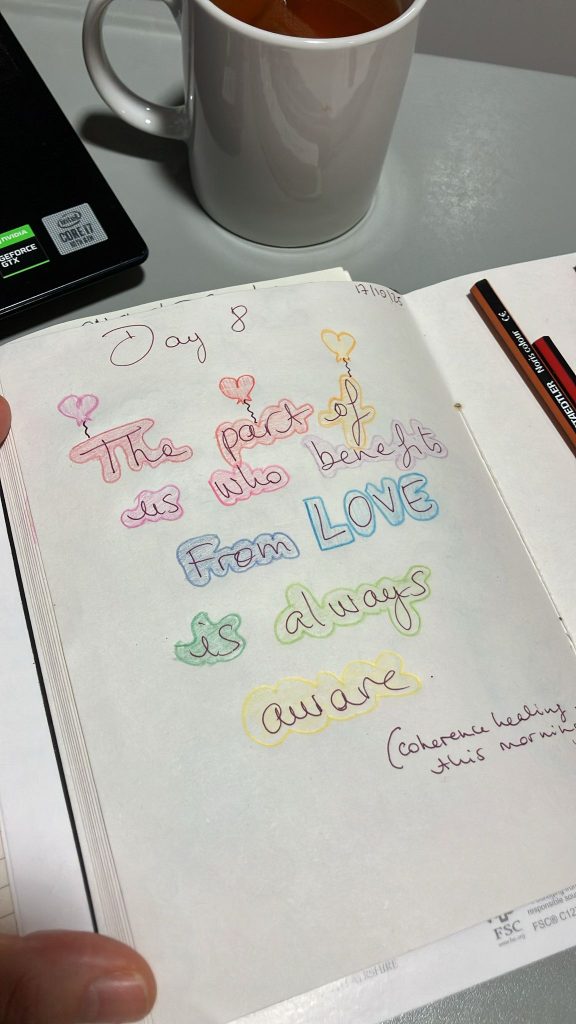 intel
CORE i7
10TH GEN
NVIDIA
GEFORCE
GTX
17/10/25
Day 8
The part of
us who benefits
From LOVE
is always
aware.
(coherence healing
this morning
Noris colour
STAEDTLER
responsible
FSC
FSC® C12